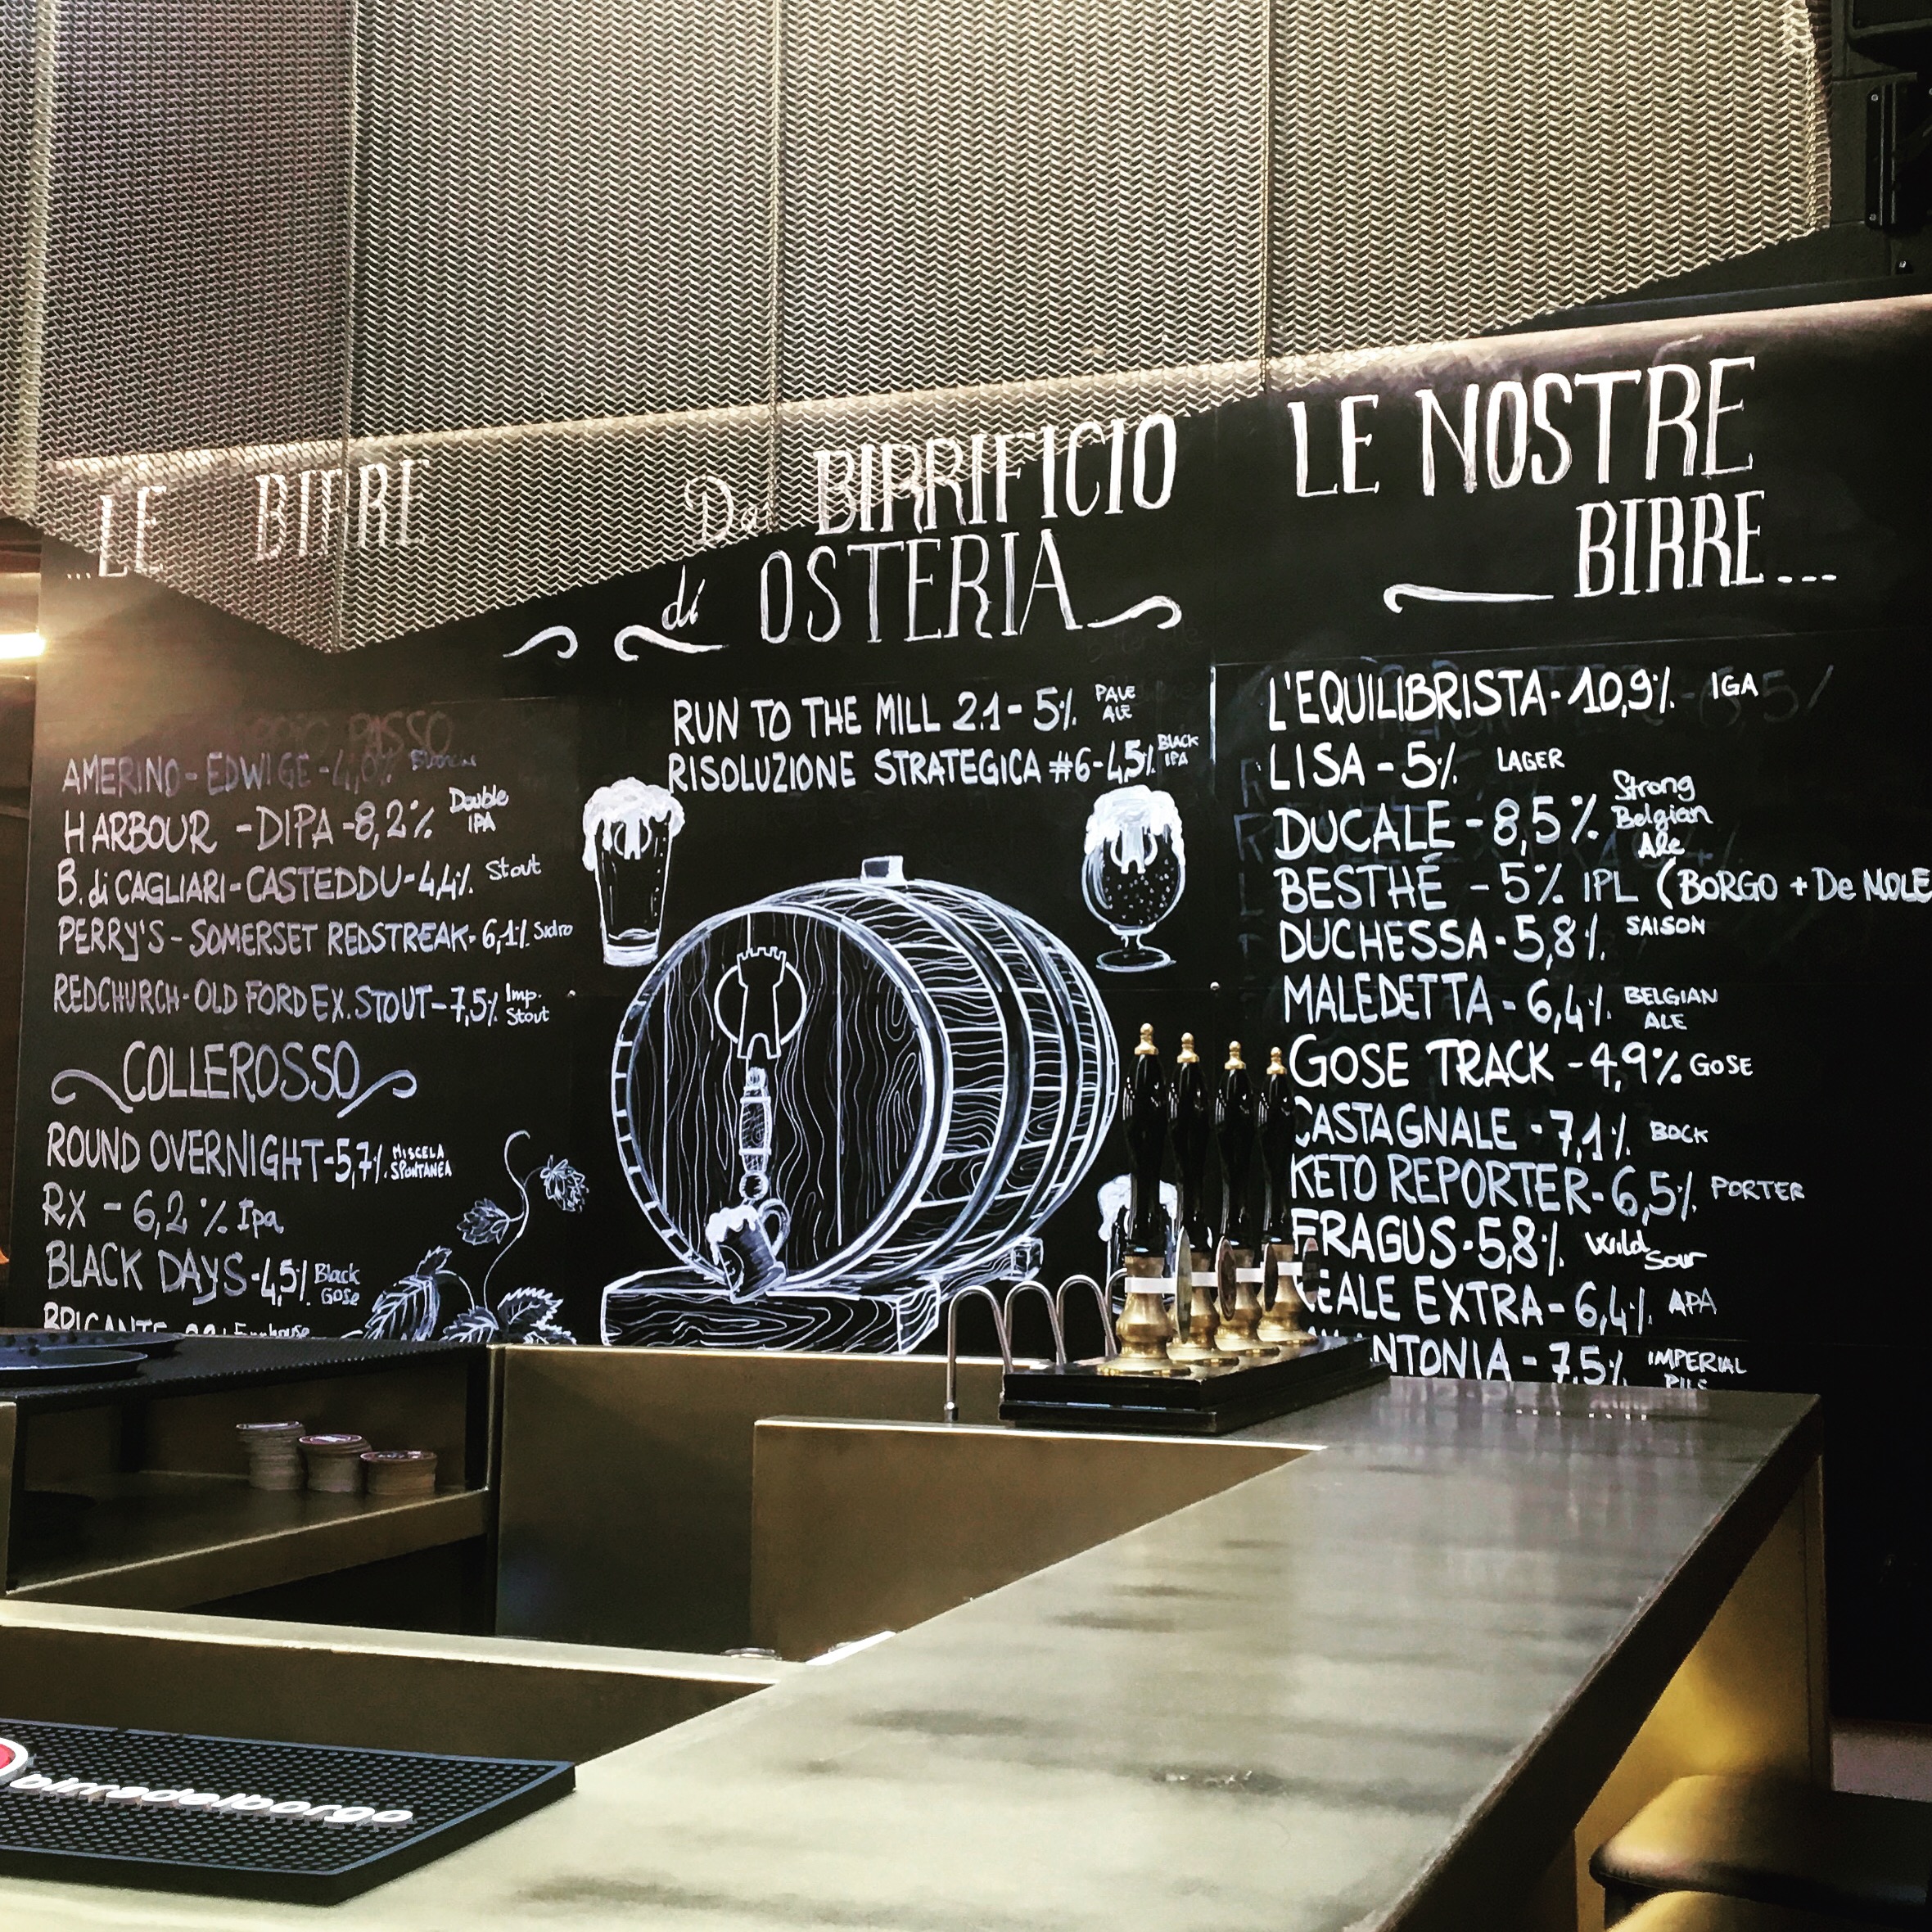 ...LE BIRRE
AMERINO - EDWIGE - 4,0%
HARBOUR - DIPA - 8,2% Double IPA
B. di CAGLIARI - CASTEDDU - 4,4% Stout
PERRY'S - SOMERSET REDSTREAK - 6,1% Sidro
REDCHURCH - OLD FORD EX. STOUT - 7,5% Imp. Stout
COLLEROSSO
ROUND OVERNIGHT - 5,7% MISCELA SPONTANEA
RX - 6,2% Ipa
BLACK DAYS - 4,5% Black GOSE
BRIGANTE
BIRRIFICIO
di OSTERIA
RUN TO THE MILL 2.1 - 5% PALE ALE
RISOLUZIONE STRATEGICA #6 - 4,5% BLACK IPA
LE NOSTRE
BIRRE...
L'EQUILIBRISTA - 10,9% IGA
LISA - 5% LAGER
DUCALE - 8,5% Strong Belgian Ale
BESTHÉ - 5% IPL (BORGO + De MOLE
DUCHESSA - 5,8% SAISON
MALEDETTA - 6,4% BELGIAN ALE
GOSE TRACK - 4,9% GOSE
CASTAGNALE - 7,1% BOCK
KETO REPORTER - 6,5% PORTER
FRAGUS - 5,8% Wild Sour
EALE EXTRA - 6,4% APA
NTONIA - 7,5% IMPERIAL
birradelborgo